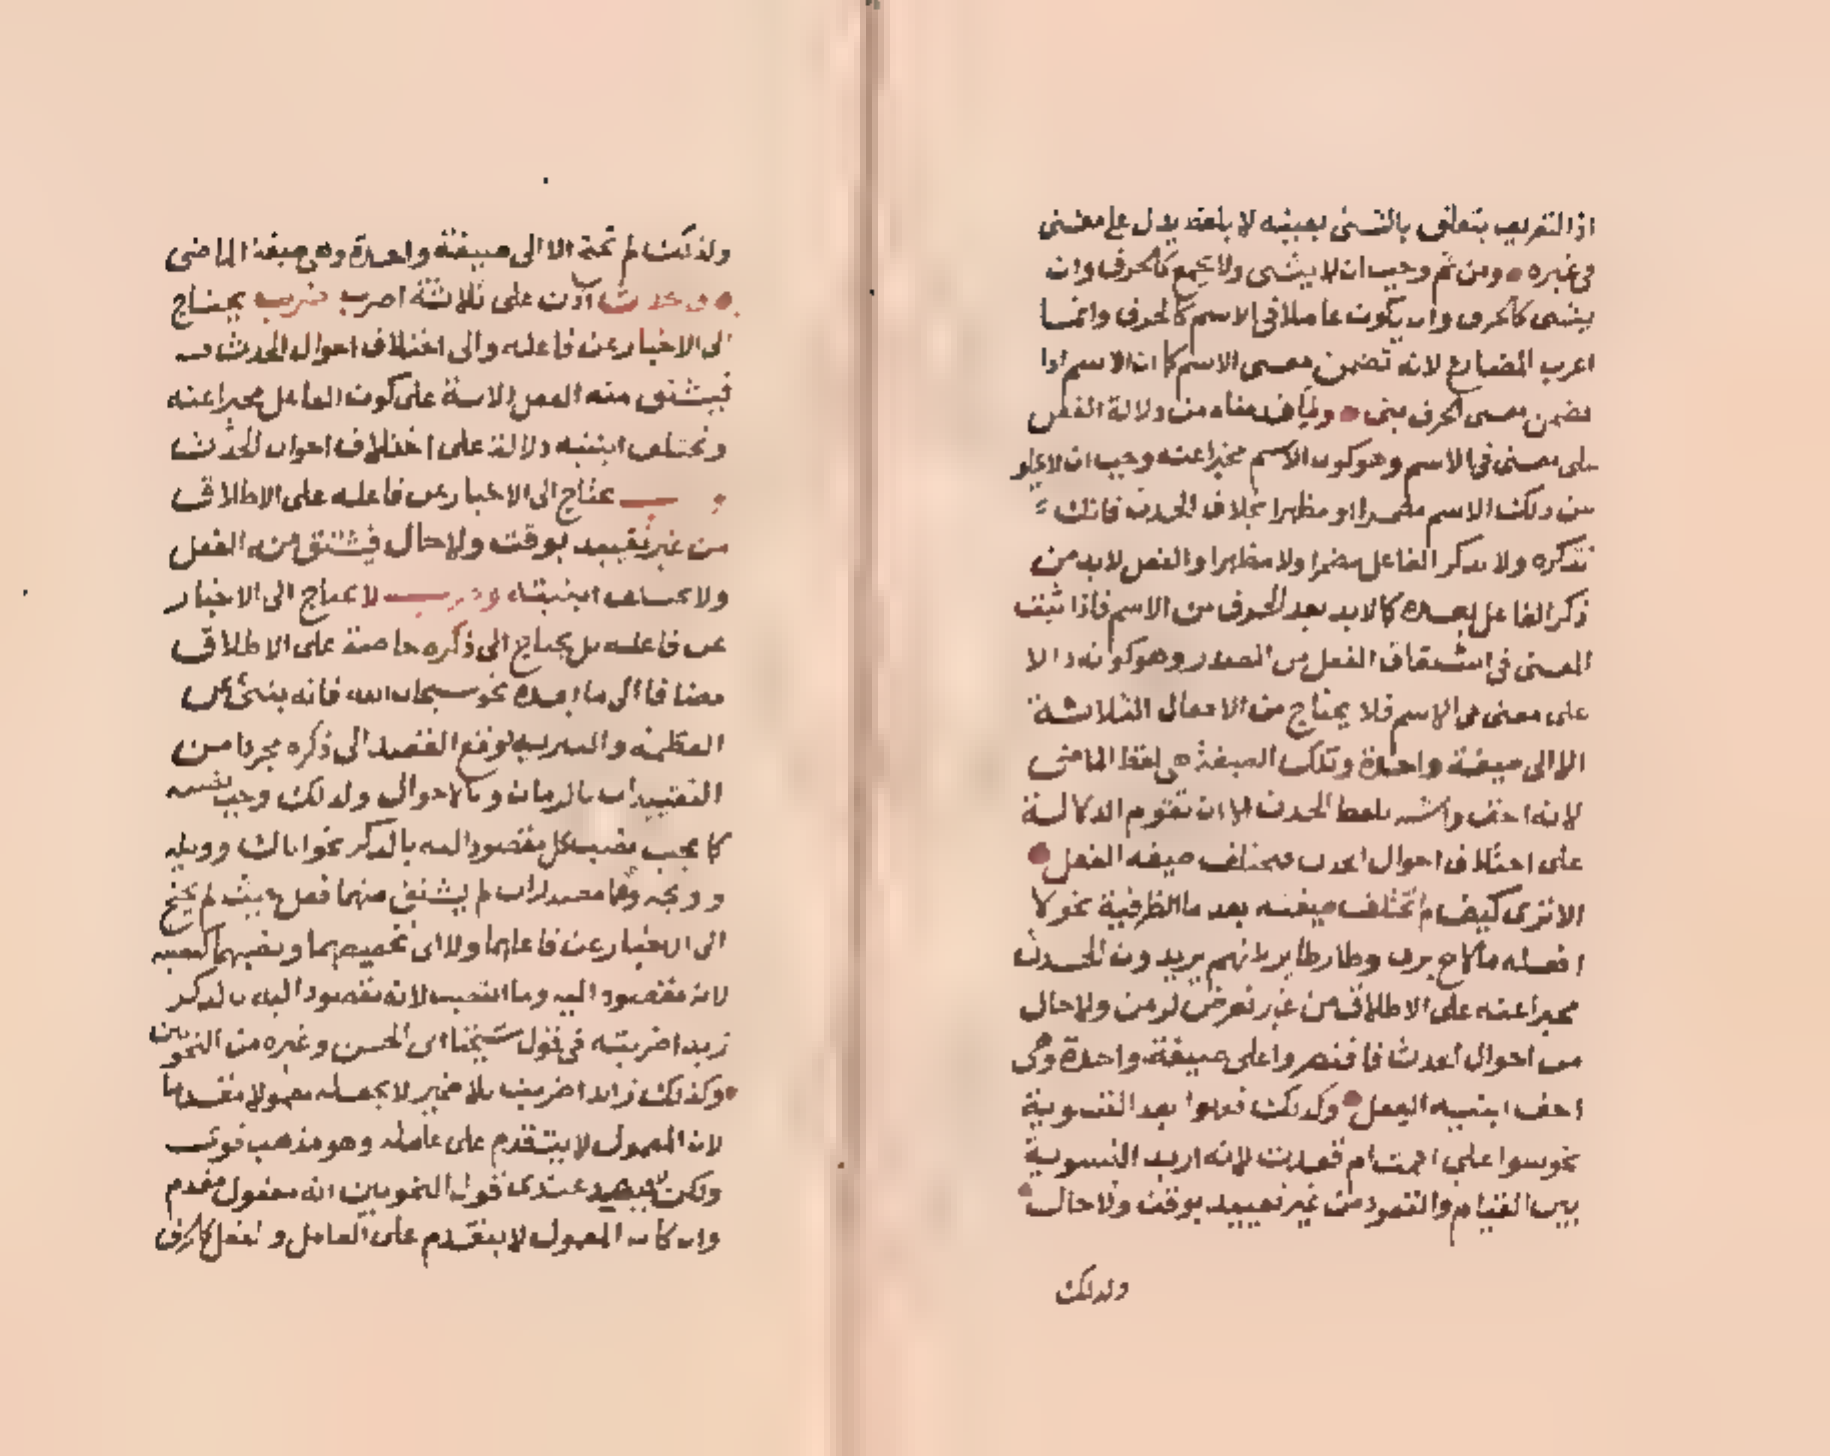 اذ التعريف يتعلق بالشئ بعينه لا بلفظ يدل على معنى
في غيره ومن ثم وجب ان لا يثنى ولا يجمع كالحرف وان
يبنى كالحرف وان يكون عاملا في الاسم كالحرف وانما
اعرب المضارع لانه تضمن معنى الاسم كما ان الاسم اذا
تضمن معنى الحرف بنى معناه من دلالة الفعل
على معنى في الاسم وهو كون الاسم مخبرا عنه وجب ان لا يخلو
من ذلك الاسم مضمرا او مظهرا بخلاف الحدث فانك
تذكره ولا تذكر الفاعل مضمرا ولا مظهرا والفعل لابد من
ذكر الفاعل بعده كما لابد بعد الحرف من الاسم فاذا ثبت
المعنى في اشتقاق الفعل من المصدر وهو كونه دالا
على معنى في الاسم فلا يحتاج من الافعال الثلاثة
الا الى صيغة واحدة وتلك الصيغة هي لفظ الماضي
لانه اخف واشبه بلفظ الحدث الا ان تقوم الدلالة
على اختلاف احوال الحدث فتختلف صيغة الفعل
الا ترى كيف لم تختلف صيغته بعد ما الظرفية نحو لا
افعله ما لاح برق وما طار طائر لانهم يريدون الحدث
مخبرا عنه على الاطلاق من غير تعرض لزمن ولا حال
من احوال الحدث فاقتصروا على صيغة واحدة وهي
اخف ابنية الفعل وكذلك فعلوا بعد التسوية
نحو سواء علي اقمت ام قعدت لانه اريد التسوية
بين القيام والقعود من غير تقييد بوقت ولا حال
ولذلك
ولذلك لم تحتج الا الى صيغة واحدة وهي صيغة الماضي
فالحدث اذن على ثلاثة اضرب ضرب يحتاج
الى الاخبار عن فاعله والى اختلاف احوال الحدث
فيشتق منه الفعل دلالة على كون الفاعل مخبرا عنه
وتختلف ابنيته دلالة على اختلاف احوال الحدث
وضرب يحتاج الى الاخبار عن فاعله على الاطلاق
من غير تقييد بوقت ولا حال فيشتق منه الفعل
ولا تختلف ابنيته وضرب لا يحتاج الى الاخبار
عن فاعله بل يحتاج الى ذكره خاصة على الاطلاق
مضافا الى ما بعده نحو سبحان الله فانه ينبئ عن
العظمة والتنزيه فوقع القصد الى ذكره مجردا من
التقييدات بالزمان وبالاحوال ولذلك وجب نصبه
كما يجب نصب كل مقصود اليه بالذكر نحو اياك وويله
وويحه وهما مصدران لم يشتق منهما فعل حيث لم يحتج
الى الاخبار عن فاعلهما ولا الى تخصيصهما ونصبهما كنصبه
لانه مقصود اليه ومما انتصب لانه مقصود اليه بالذكر
زيدا ضربته في قول شيخنا ابي الحسن وغيره من النحويين
وكذلك زيدا ضربت بلا ضمير لا يجعله مفعولا مقدما
لان المعمول لا يتقدم على عامله وهو مذهب قوي
ولكن يبعد عندي قول النحويين انه مفعول مقدم
وان كان المعمول لا يتقدم على العامل والفعل كالحرف